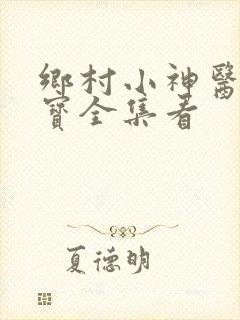 鄉村小神醫
寶全集看
夏德明